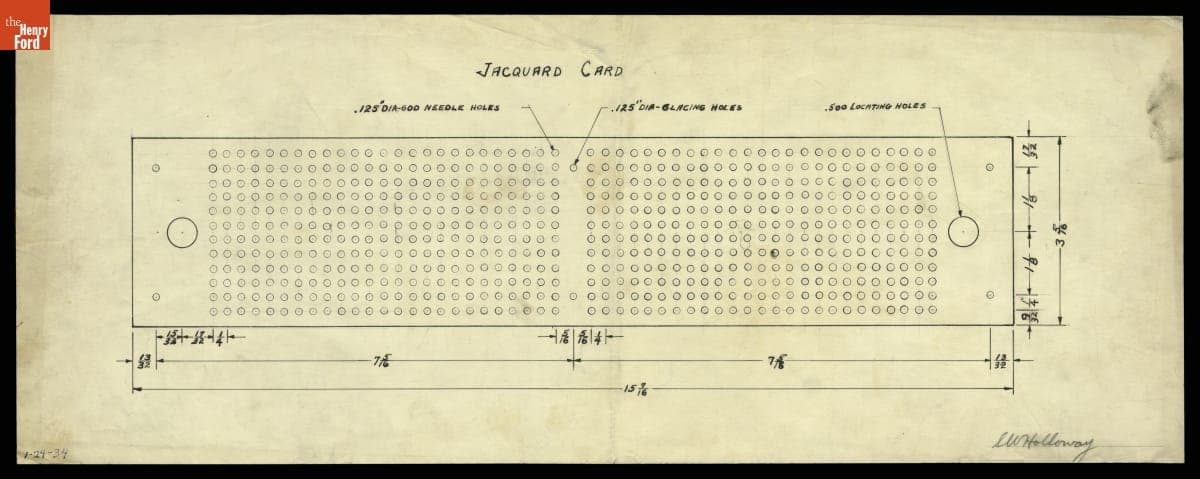 the
Henry
Ford
JACQUARD CARD
.125" DIA-600 NEEDLE HOLES
.125" DIA-6LACING HOLES
.500 LOCATING HOLES
17/32
1 1/8
3 5/16
1 1/8
1/4
9/32
15/32 17/32 1/4
5/16 5/16 1/4
13/32
7 5/16
7 5/16
13/32
15 7/16
1-24-34
CW Holloway